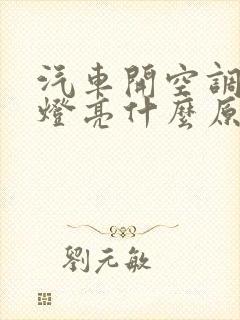 汽車開空調
燈亮什麼原
劉元敏